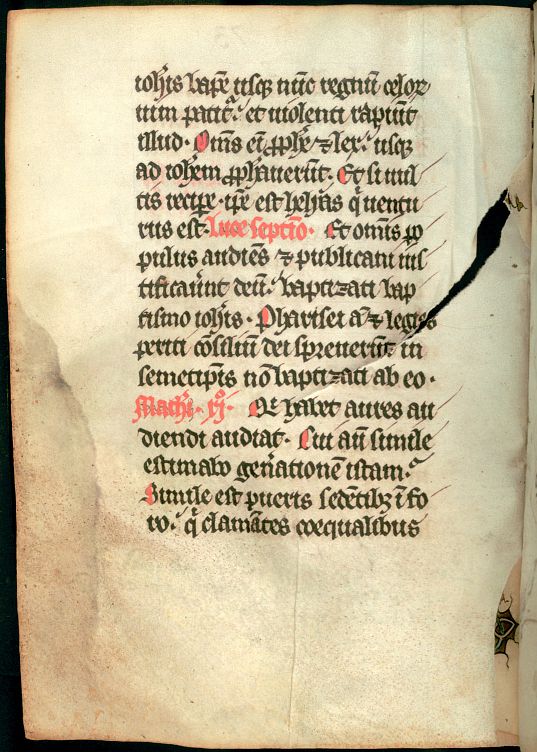 ioh̄is bap̄te usq̄ nūc regnū celor
um patit̃. et uiolenti rapiūt
illud. Om̄s ei̅ ꝓph̄e ⁊ lex. usq̄
ad ioh̄em ꝓph̄auer̄ūt. Et si uul
tis recip̄e. ip̄e est helyas q̄ uentu
rus est. luce septīo. Et om̄is po
pulus audiēs ⁊ publicani ius
tificaue̅r̄nt deū. baptizati bap
tismo ioh̄is. Pharisei aū ⁊ legis
periti cōsiliū dei spreuer̄ūt in
semetip̄is nō baptizati ab eo.
Math̄i. xj. Qi habet aures au
diendi audiat. Cui aū simile
estimabo gen̄ationē istam.
Simile est pueris sedētibꝫ ī fo
ro. q̄ clamātes coequalibus